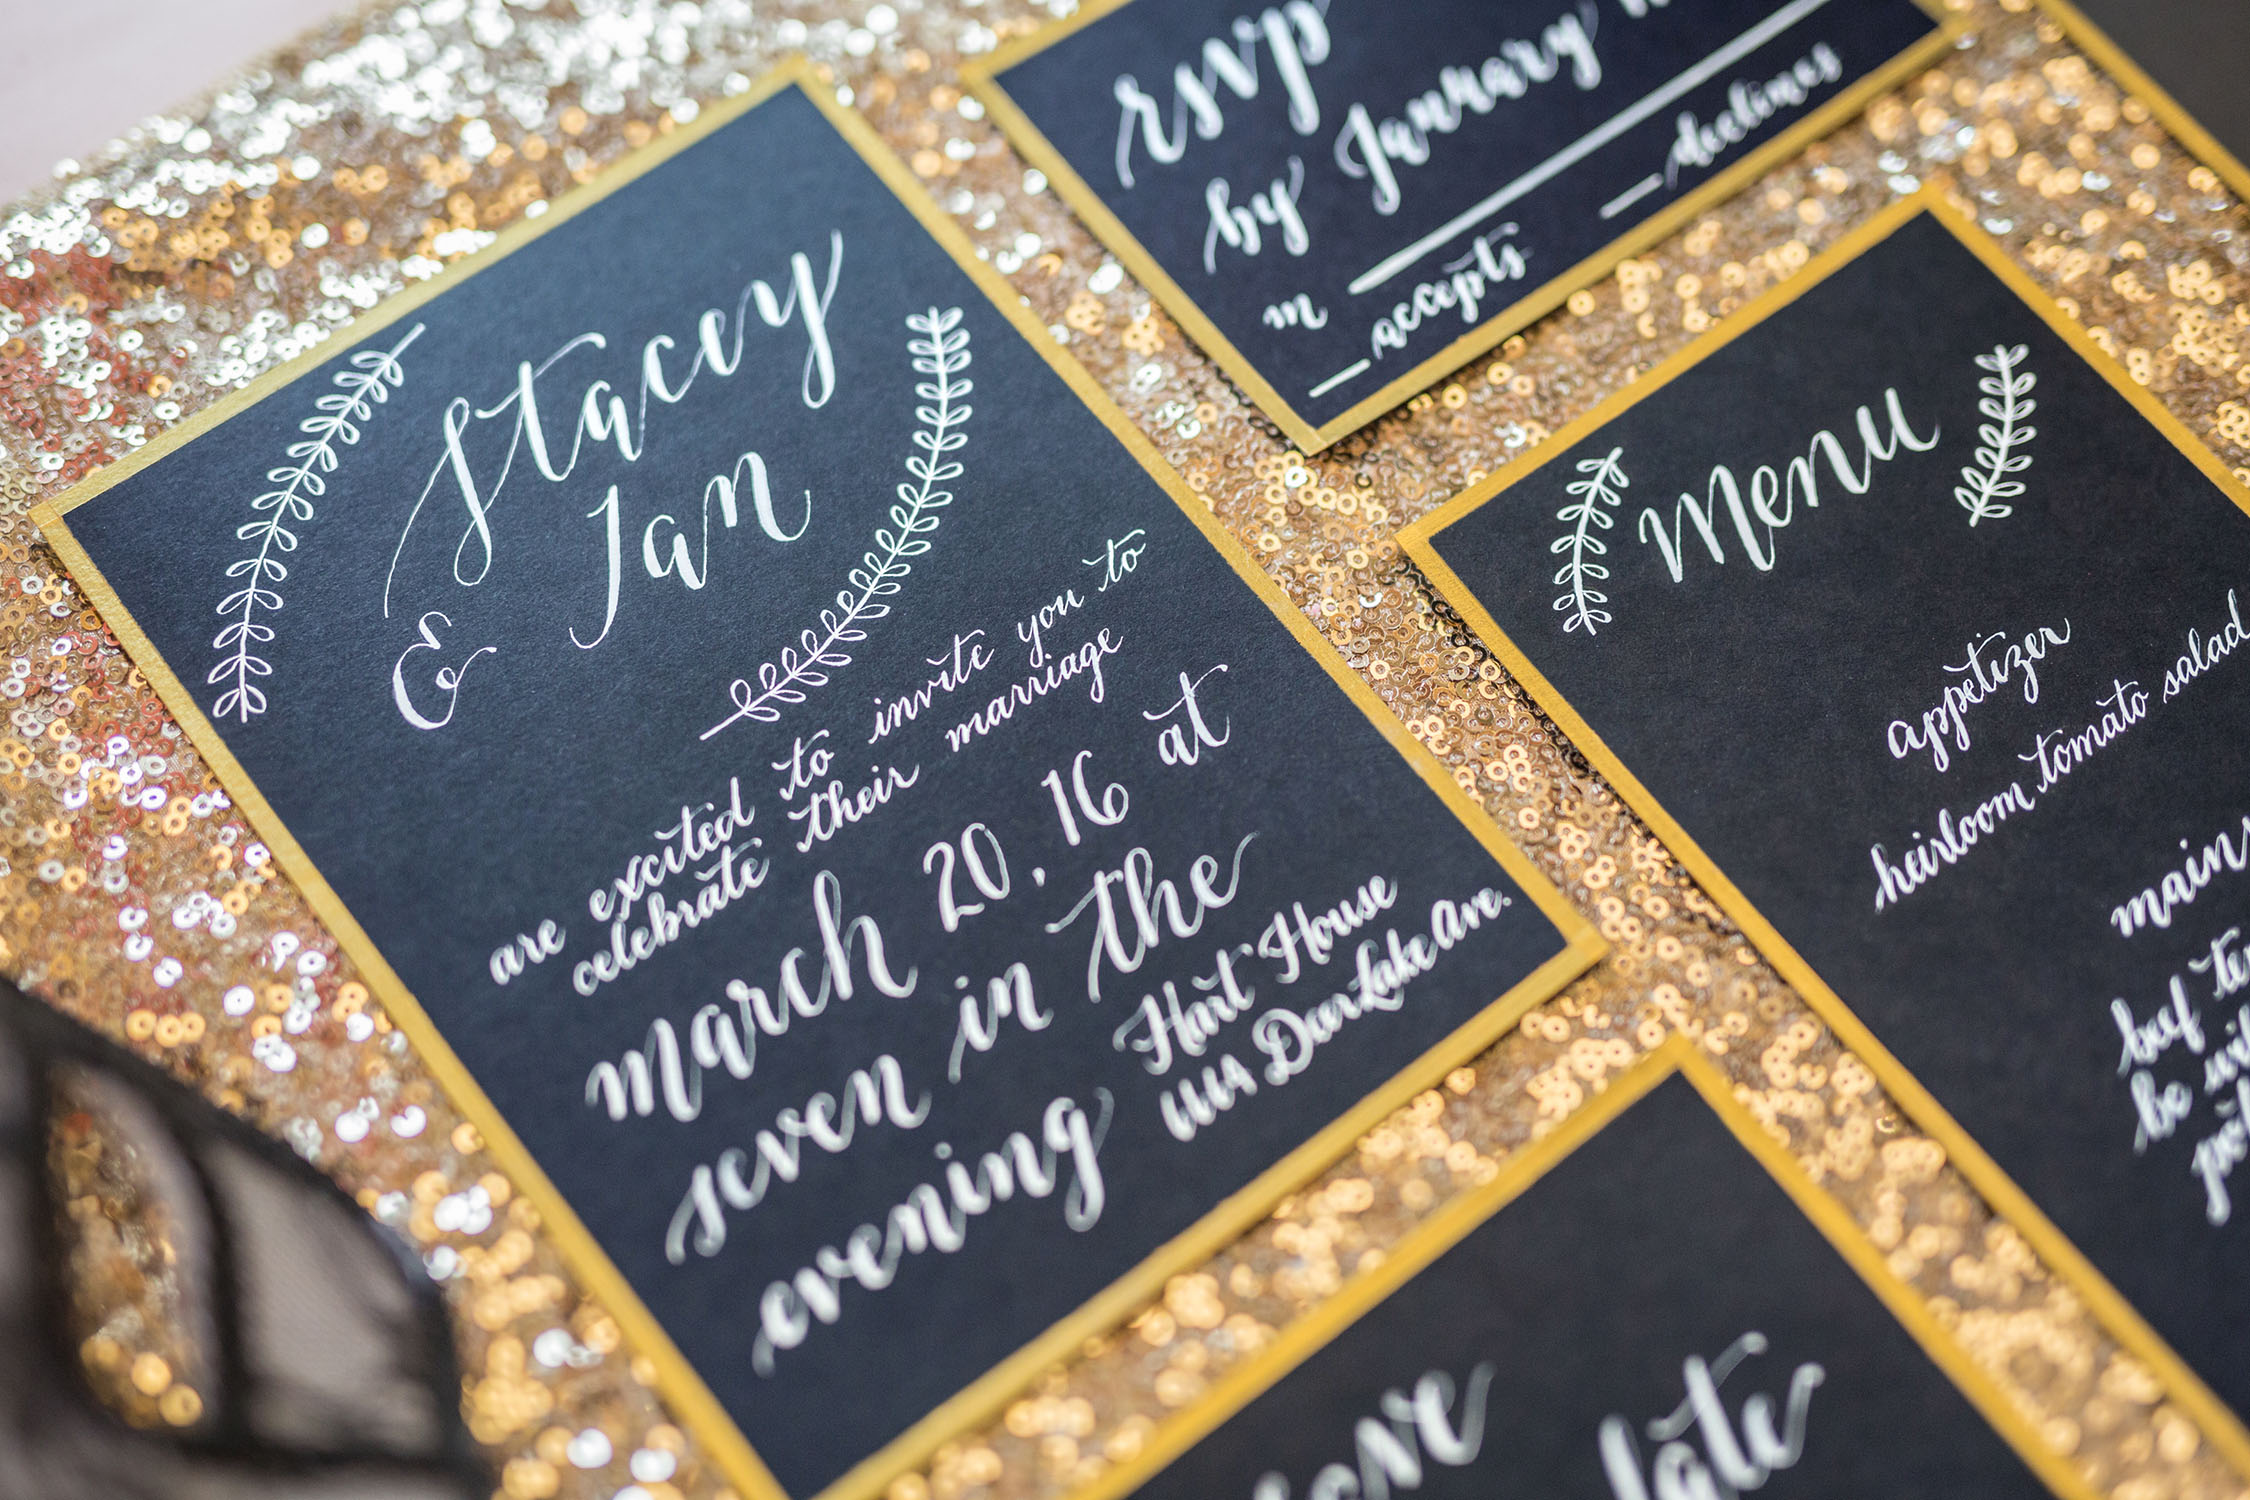 Stacey
& Ian
are excited to invite you to
celebrate their marriage
March 20, 16 at
seven in the
evening
Hart House
Deer Lake Ave.
rsvp
by January
m
accepts
declines
Menu
appetizer
heirloom tomato salad
main
beef
be
late